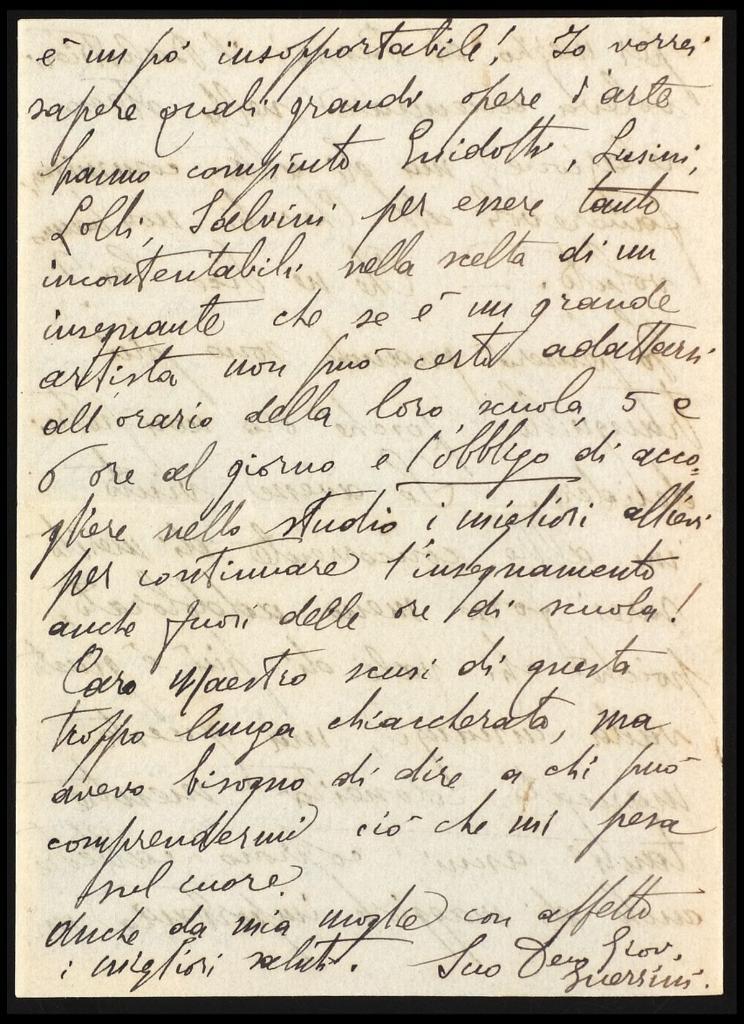 è un pò insopportabile! Io vorrei
sapere quali grandi opere d'arte
hanno compiuto Guidotti, Lusini,
Lolli, Salvini per essere tanto
incontentabili nella scelta di un
insegnante che se è un grande
artista non può certo adattarsi
all'orario della loro scuola, 5 e
6 ore al giorno e l'obbligo di acco=
gliere nello studio i migliori allievi
per continuare l'insegnamento
anche fuori delle ore di scuola!
Caro Maestro scusi di questa
troppo lunga chiaccherata, ma
avevo bisogno di dire a chi può
comprendermi ciò che mi pesa
nel cuore.
Anche da mia moglie con affetto
i migliori saluti. Suo Dev Giov.
Guerrini.